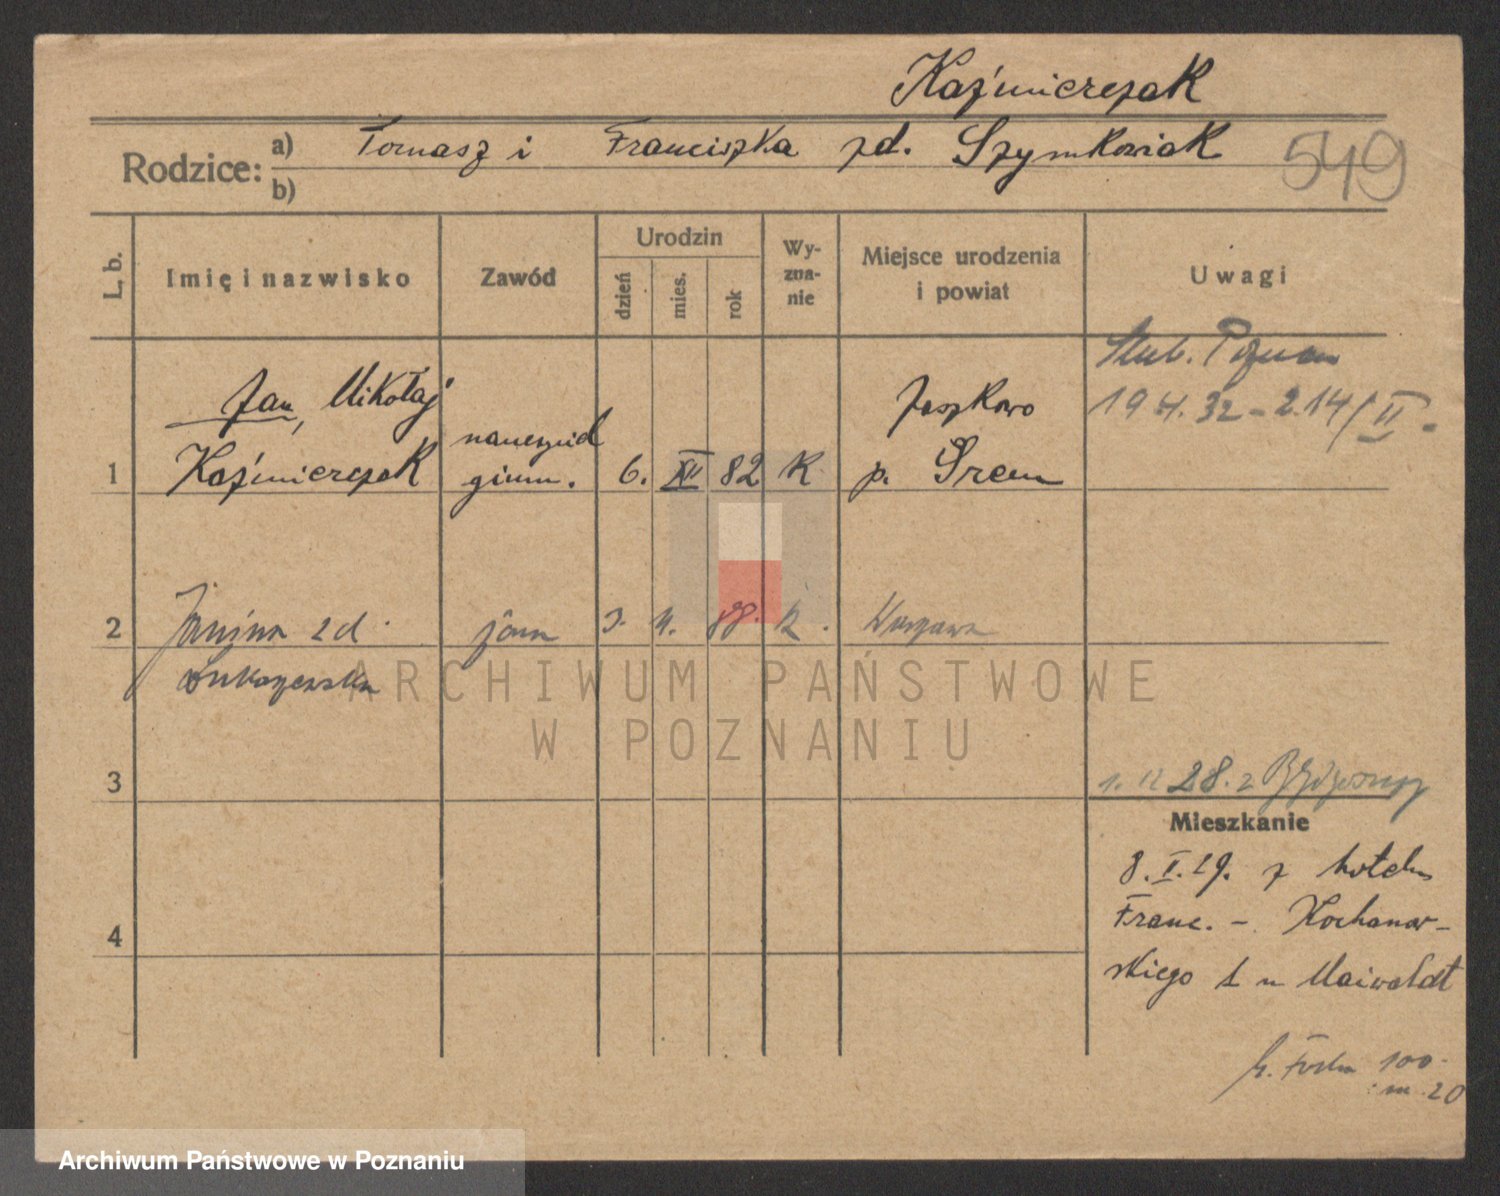 Kaźmierczak
Rodzice: a) Tomasz i Franciszka zd. Szymkowiak
b)
549
L. b.
Imię i nazwisko
Zawód
Urodzin
dzień
mies.
rok
Wy-
zna-
nie
Miejsce urodzenia
i powiat
Uwagi
Ślub. Poznań
19 4. 32 - 214/II -
Jan, Mikołaj
Kaźmierczak
nauczyciel
gimn.
1
6. XII 82 K
Jaszkowo
p. Śrem
2
Janina zd.
Łukaszewska
żona
88. K.
Warszawa
3
28. z Bydgoszczy
Mieszkanie
8. II. 29. z hotelu
Franc. - Kochanow-
skiego 1 u Maiwaldt
4
100
m. 20
ARCHIWUM PAŃSTWOWE
W POZNANIU
Archiwum Państwowe w Poznaniu